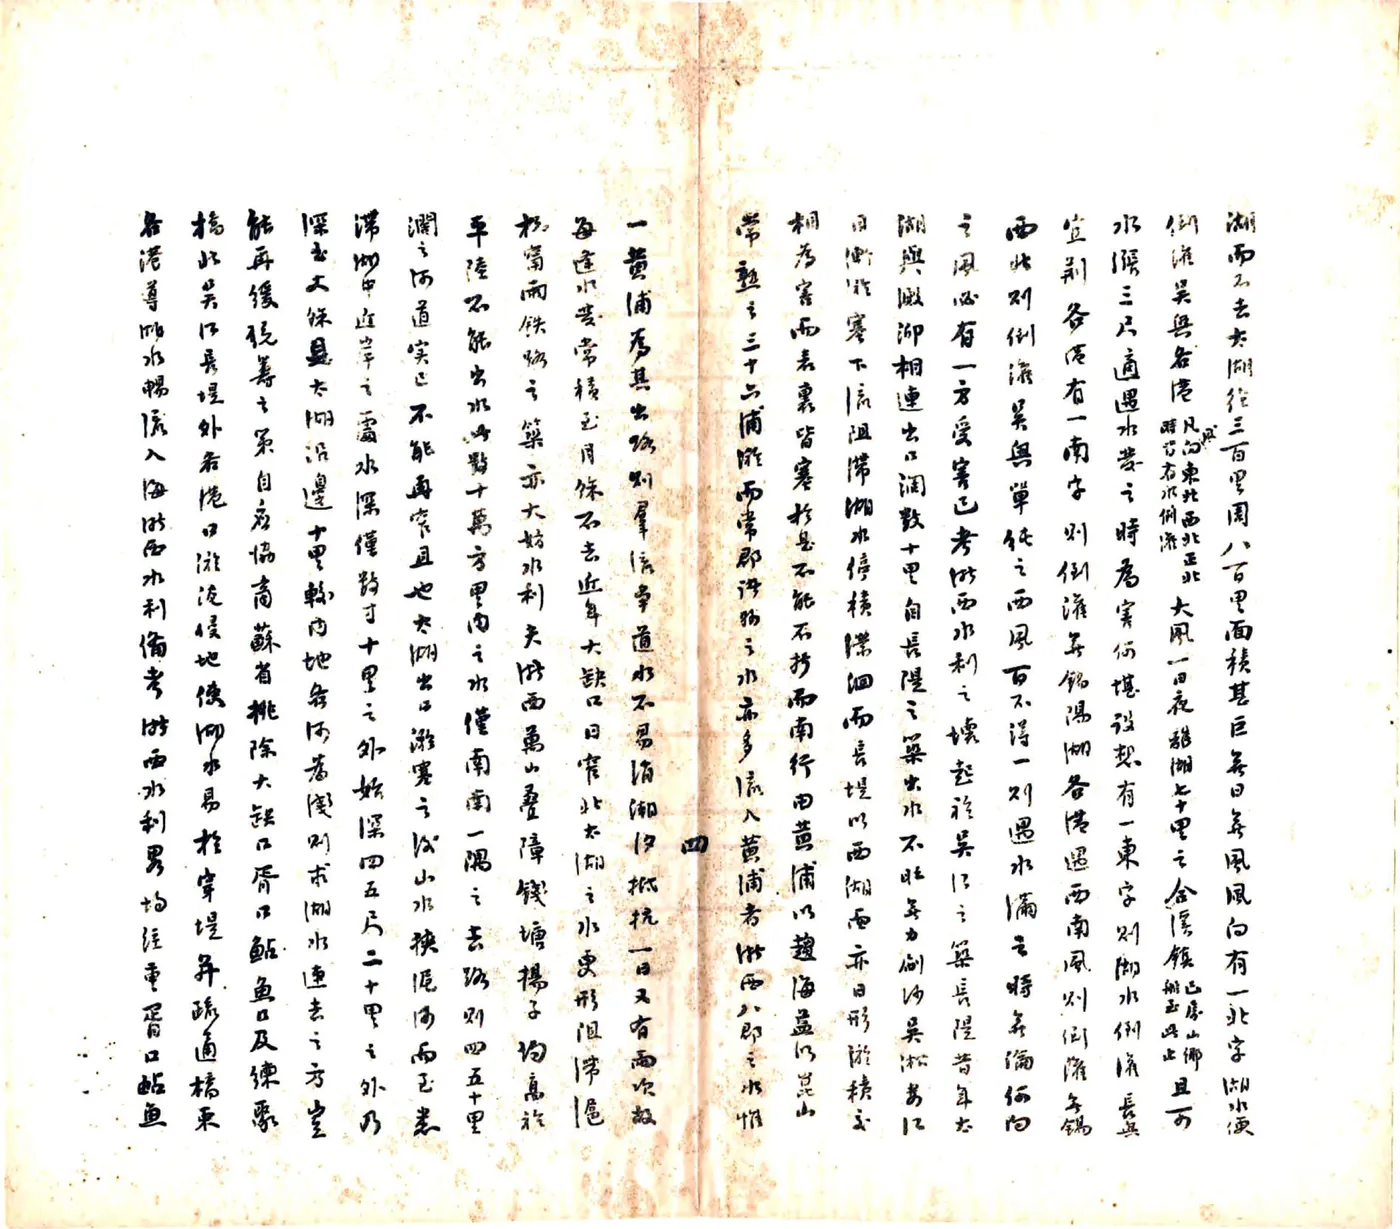 湖而不去太湖徑三百里周八百里面積甚巨無日無風風向有一北字湖水便
倒灌吳興各港凡風向東北西北正北時皆有水倒灌大風一日夜離湖七十里之合溪鎮已屬山鄉船至此止且可
水漲三尺適遇水發之時為害何堪設想有一東字則湖水倒灌長興
宜荆各港有一南字則倒灌無錫陽湖各港遇西南風則倒灌無錫
西北則倒灌吳興單純之西風百不得一則遇水滿之時無論何向
之風必有一方受害已考浙西水利之壞起於吳江之築長隄昔年太
湖與澱泖相連出口濶數十里自長隄之築出水不旺無力刷沙吳淞婁江
日漸淤塞下流阻滯湖水停積瀠洄而長堤以西湖面亦日形淤積交
相為害而表裏皆塞於是不能不折而南行由黃浦以趨海益以崑山
常熟之三十六浦淤而常郡諸縣之水亦多流入黃浦者浙西八郡之水惟
四
一黃浦為其出路則羣流爭道水不易消潮汐抵抗一日又有兩次故
每逢水發常積至月餘不去近年大缺口日窄北太湖之水更形阻滯滬
杭甯兩鉄路之築亦大妨水利夫浙西萬山叠障錢塘揚子均高於
平陸不能出水此數十萬方里內之水僅南南一隅之去路則四五十里
濶之河道实已不能再窄且也太湖出口淤塞之後山水挾泥沙而至悉
滯湖中近岸之處水深僅數寸十里之外始深四五尺二十里之外乃
深至丈餘且太湖沿邊十里較內地各河為淺則求湖水速去之方豈
能再緩統籌之策自应協商蘇省挑除大缺口胥口鮎魚口及練聚
橋北吳江長堤外各港口淤淺侵地使湖水易於穿堤并疏通橋東
各港導湖水暢流入海浙西水利備考浙西水利畧均注重胥口鮎魚